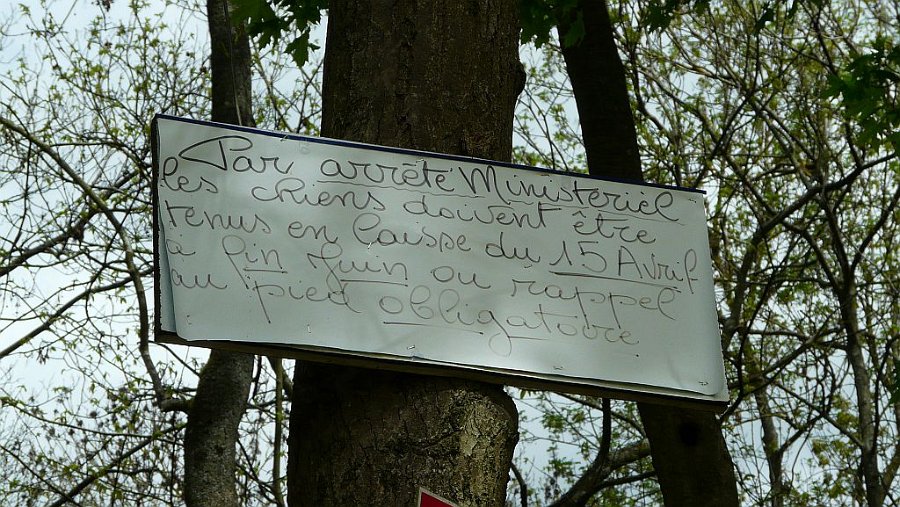 Par arrêté Ministériel
les chiens doivent être
tenus en laisse du 15 Avril
à fin Juin ou rappel
au pied obligatoire